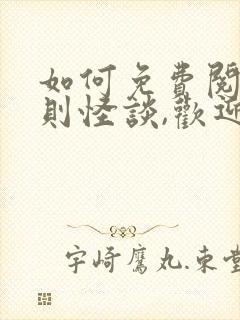 如何免費閱
則怪談,歡迎
宇崎鷹丸.束堂